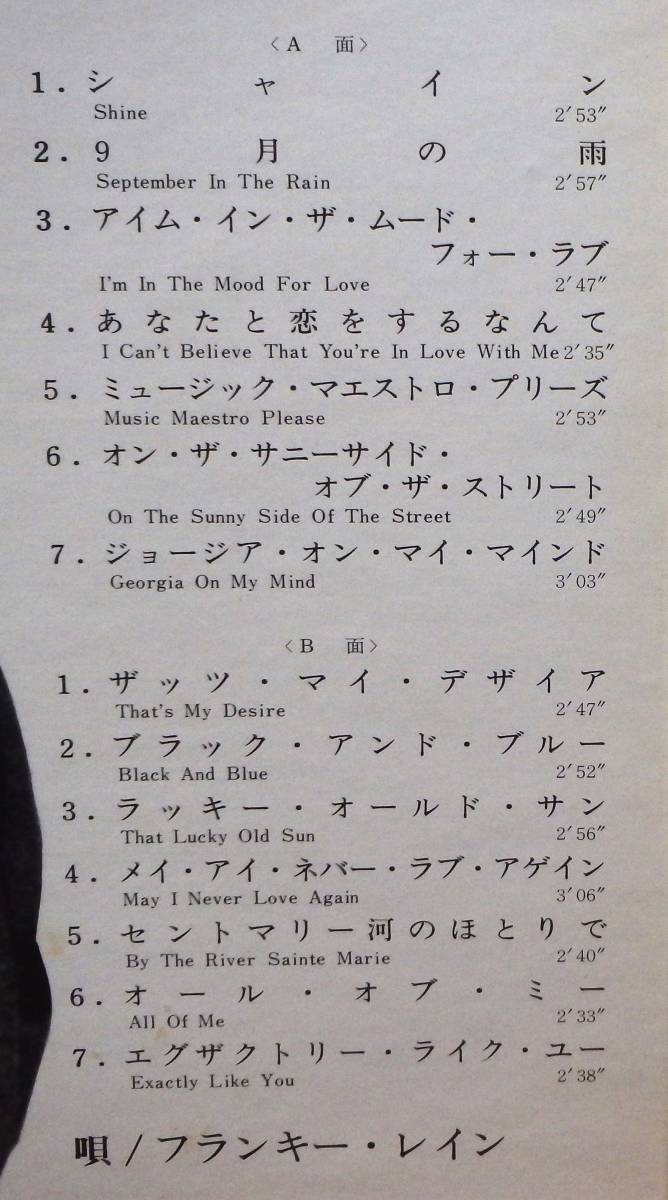 〈A 面〉
1. シャイン
Shine 2′53″
2. 9月の雨
September In The Rain 2′57″
3. アイム・イン・ザ・ムード・
フォー・ラブ
I'm In The Mood For Love 2′47″
4. あなたと恋をするなんて
I Can't Believe That You're In Love With Me 2′35″
5. ミュージック・マエストロ・プリーズ
Music Maestro Please 2′53″
6. オン・ザ・サニーサイド・
オブ・ザ・ストリート
On The Sunny Side Of The Street 2′49″
7. ジョージア・オン・マイ・マインド
Georgia On My Mind 3′03″
〈B 面〉
1. ザッツ・マイ・デザイア
That's My Desire 2′47″
2. ブラック・アンド・ブルー
Black And Blue 2′52″
3. ラッキー・オールド・サン
That Lucky Old Sun 2′56″
4. メイ・アイ・ネバー・ラブ・アゲイン
May I Never Love Again 3′06″
5. セントマリー河のほとりで
By The River Sainte Marie 2′40″
6. オール・オブ・ミー
All Of Me 2′33″
7. エグザクトリー・ライク・ユー
Exactly Like You 2′38″
唄/フランキー・レイン